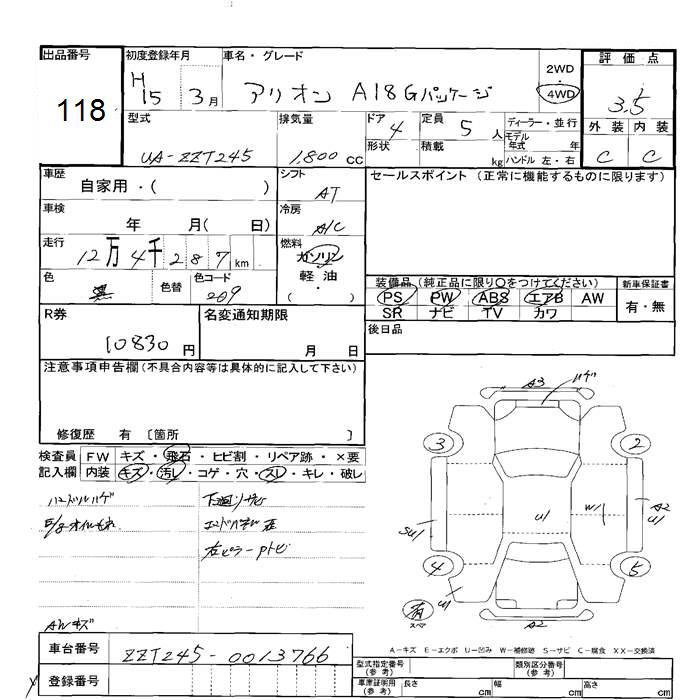 出品番号 初度登録年月 車名・グレード 2WD 評価点
118 H15 3月 アリオン A18Gパッケージ ・ 3.5
4WD
型式 排気量 ドア 4 定員 5人 ディーラー・並行 外装 内装
モデル年式 年
UA-ZZT245 1,800cc 形状 積載 kg ハンドル 左・右 C C
車歴 シフト セールスポイント (正常に機能するものに限ります)
自家用・( ) AT
車検 冷房
年 月( 日) A/C
走行 燃料
12万4千287km ガソリン
色 色替 色コード 軽・油 装備品 (純正品に限り○をつけてください) 新車保証書
黒 209 ( ・ ) PS PW ABS エアB AW 有・無
R券 名変通知期限 SR ナビ TV カワ
10830円 月 日 後日品
注意事項申告欄(不具合内容等は具体的に記入して下さい)
修復歴 有 〔箇所 〕
検査員 FW キズ・飛石・ヒビ割・リペア跡・×要
記入欄 内装 キズ・汚レ・コゲ・穴・スレ・キレ・破レ
ハンドルハゲ 下廻りサビ
E/gオイルモレ
右ピラーPトビ
AWキズ
A3 ハゲ
3 2
SU1 U1 W1 A2 U1
4 5
有 U1
スペア A2
A-キズ E-エクボ U-凹み W-補修跡 S-サビ C-腐食 XX-交換済
車台番号 ZZT245-0013766
型式指定番号(参考) 類別区分番号(参考)
登録番号
車庫証明用(参考) 長さ cm 幅 cm 高さ cm